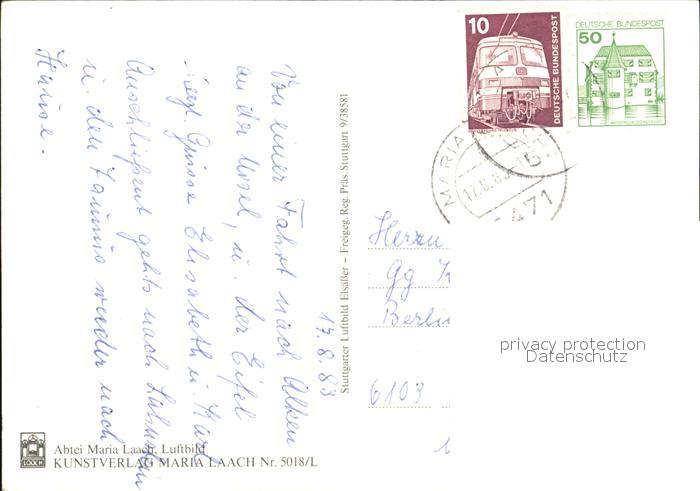 17.8.83
Von einer Fahrt nach Alken
an der Mosel, u. der Eifel
Grüsse Elisabeth u. Karl
Anschließend gehts nach Lahnstein
u. den Taunus wieder nach
Hause.
Stuttgarter Luftbild Elsäßer – Freigeg. Reg. Präs. Stuttgart 9/38581
10
DEUTSCHE BUNDESPOST
DEUTSCHE BUNDESPOST
50
MARIA
17.8.83
5471
Herrn
Gg
Berlin
6103
privacy protection
Datenschutz
LAACH
Abtei Maria Laach, Luftbild
KUNSTVERLAG MARIA LAACH Nr. 5018/L